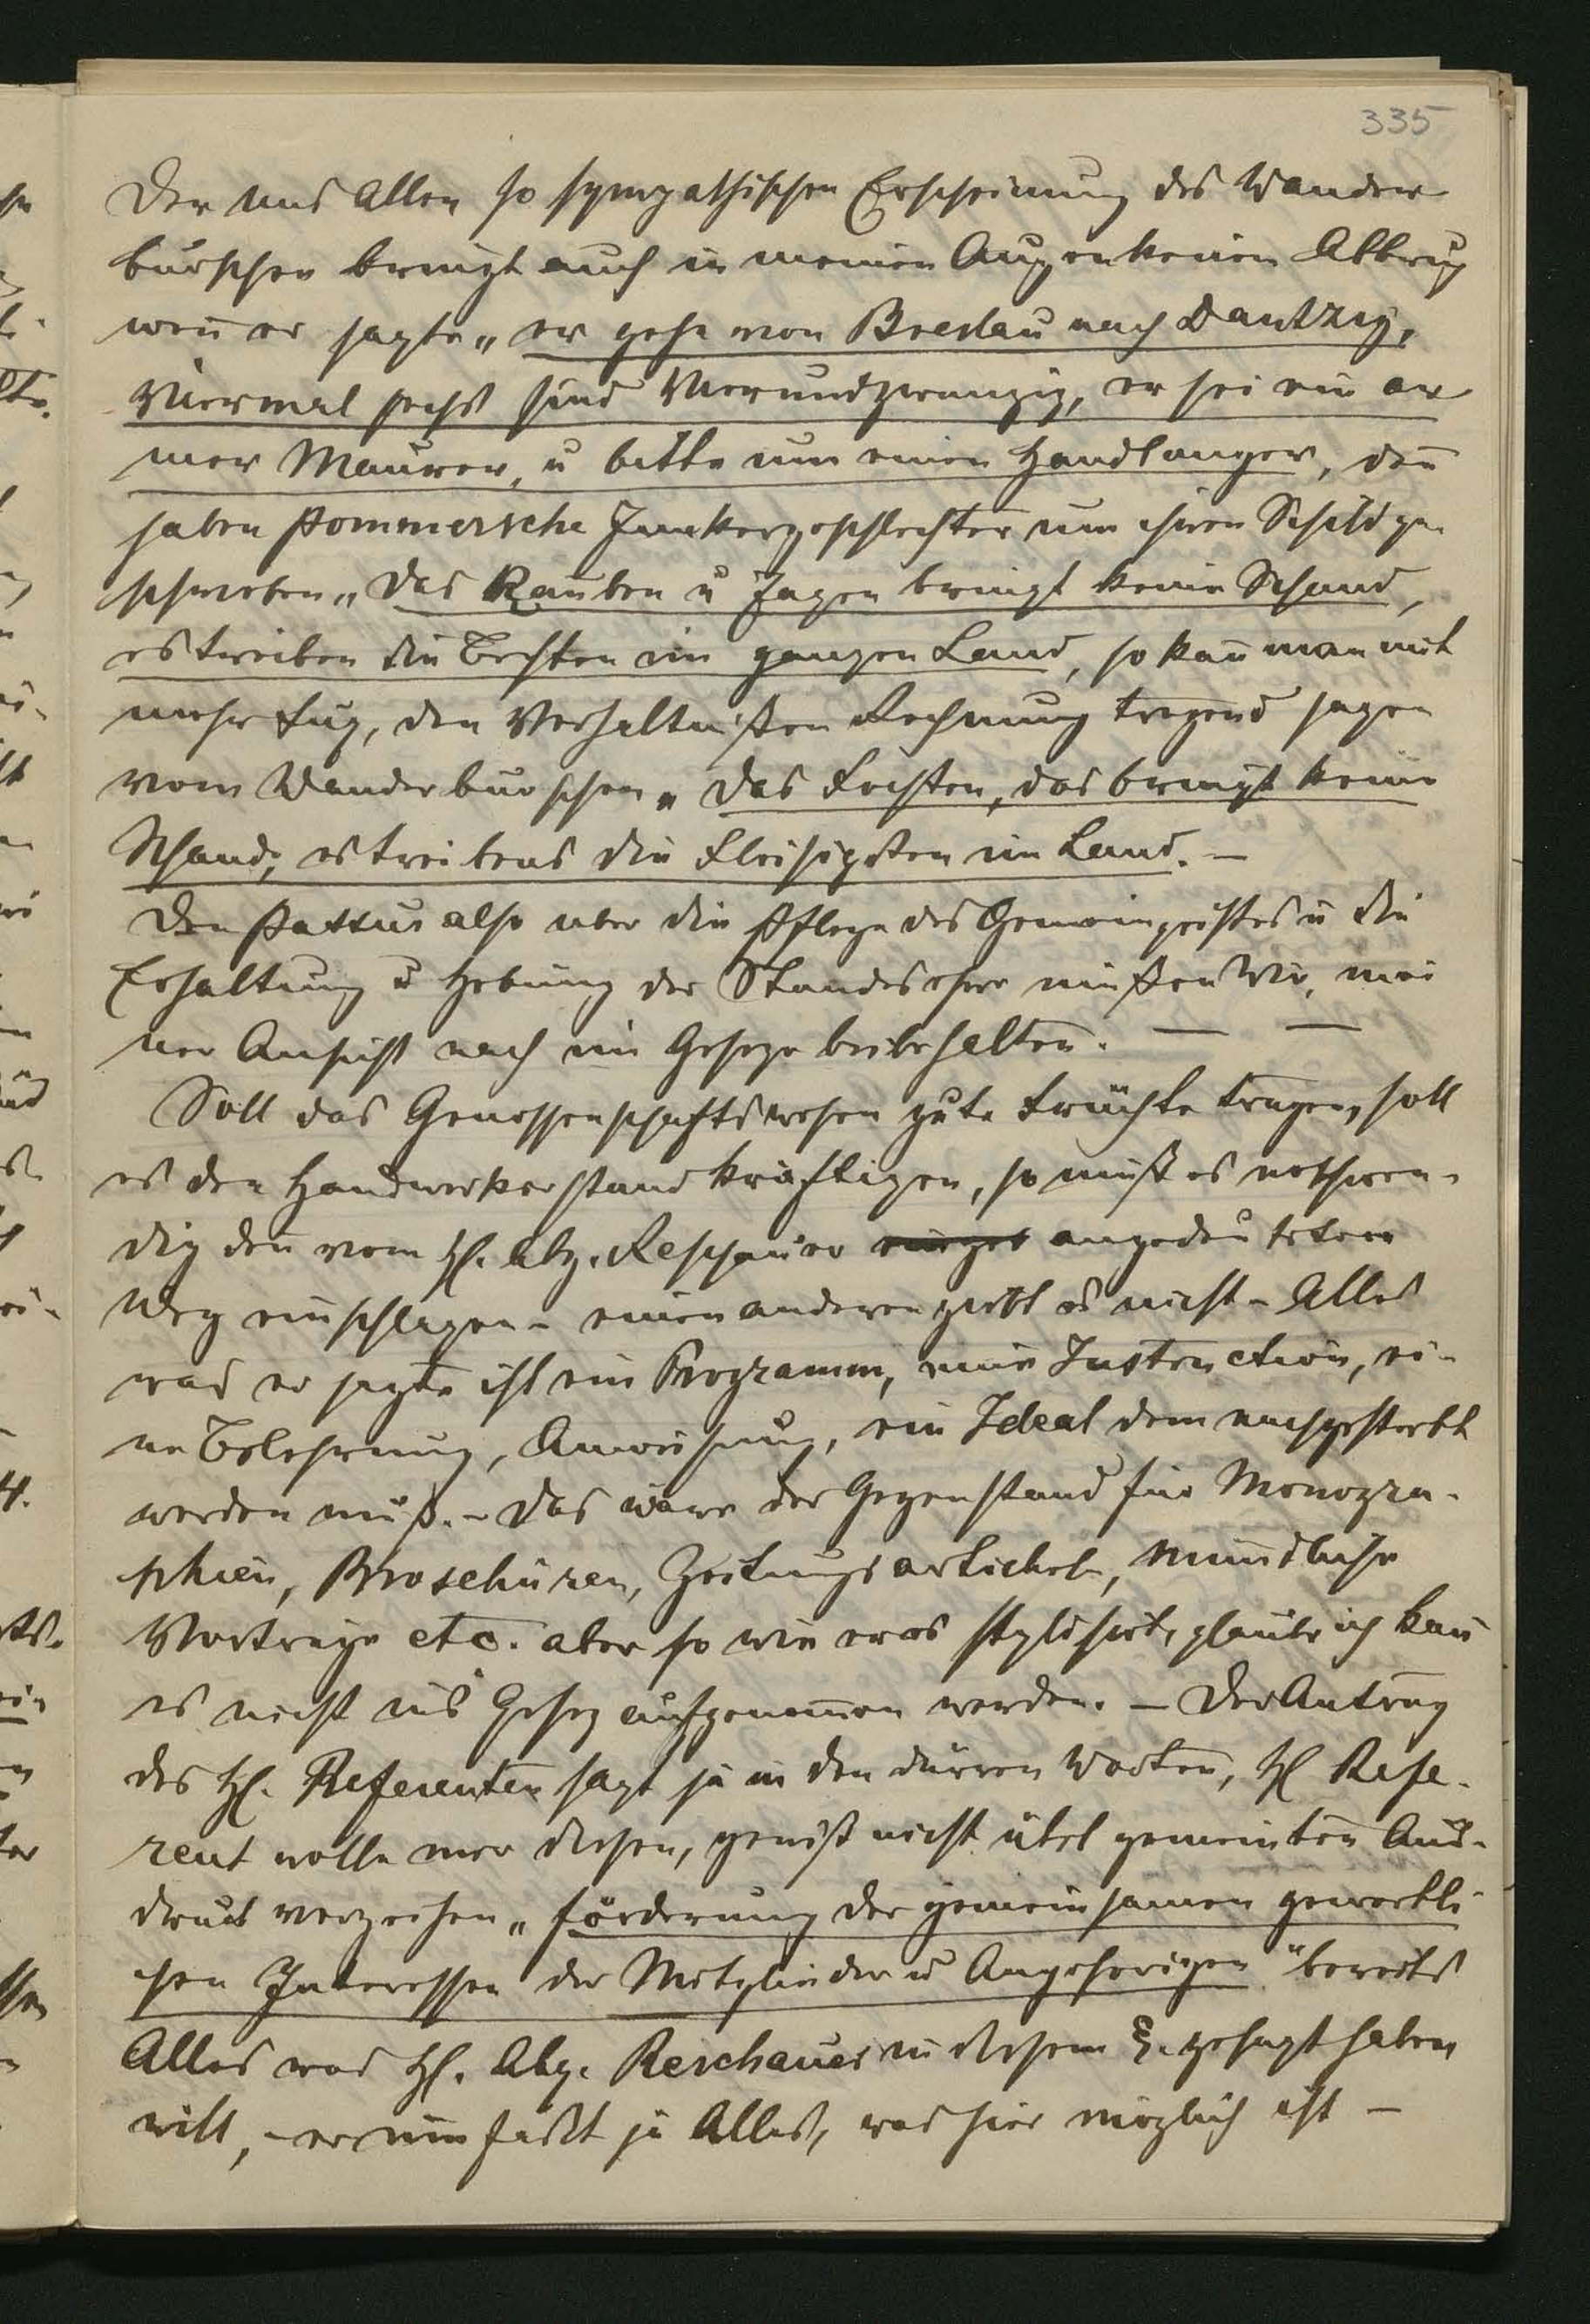 335
Der uns Allen so sympathischen Erscheinung des Wander
burschen bringt auch in meinen Augen keinen Abbruch
weñ er sagte „er gehe von Breslau nach Dantzig,
Viermal sechs sind Vierundzwanzig, er sei ein ar
mer Maurer, u bitte um einen Handlanger, deñ
haben Pommersche Junkergeschlechter um ihren Schild ge
schrieben „Das Rauben u Jagen bringt keine Schand,
es treiben die Besten im ganzen Land, so kañ man mit
mehr Fug, den Verhältnißen Rechnung tragend sagen
vom Wanderburschen „Das Fechten, das bringt keine
Schand, es treibens die Fleisigsten im Land. —
Den Passus also über die Pflege des Gemeingeistes u die
Erhaltung u Hebung der Standesehre müßen Wir, mei
ner Ansicht nach im Geseze beibehalten. — —
Soll das Genossenschaftswesen gute Früchte tragen, soll
es den Handwerkerstand kräftigen, so muß es nothwen-
dig den vom H. Abg. Reschauer angedeuteten
Weg einschlagen - einen anderen gibt es nicht - Alles
was er sagte ist ein Programm, eine Instruction, ei-
ne Belehrung, Anweisung, ein Ideal dem nachgestrebt
werden muß. - Das wäre der Gegenstand für Monogra-
phien, Broschüren, Zeitungsartickel, Mündliche
Vorträge etc. aber so wie er es stylisirt, glaube ich kañ
es nicht in's Gesez aufgenom̄en werden. — Der Antrag
des H. Referenten sagt ja in den dürren Worten, H Refe-
rent wolle mir diesen, gewiß nicht übel gemeinten Aus-
druck verzeihen „förderung der gemeinsamen gewerbli
chen Interessen der Mitglieder u Angehörigen" bereits
Alles was H. Abg. Reschauer in diesem §. gesagt haben
will, - er umfaßt ja Alles, was hier möglich ist —